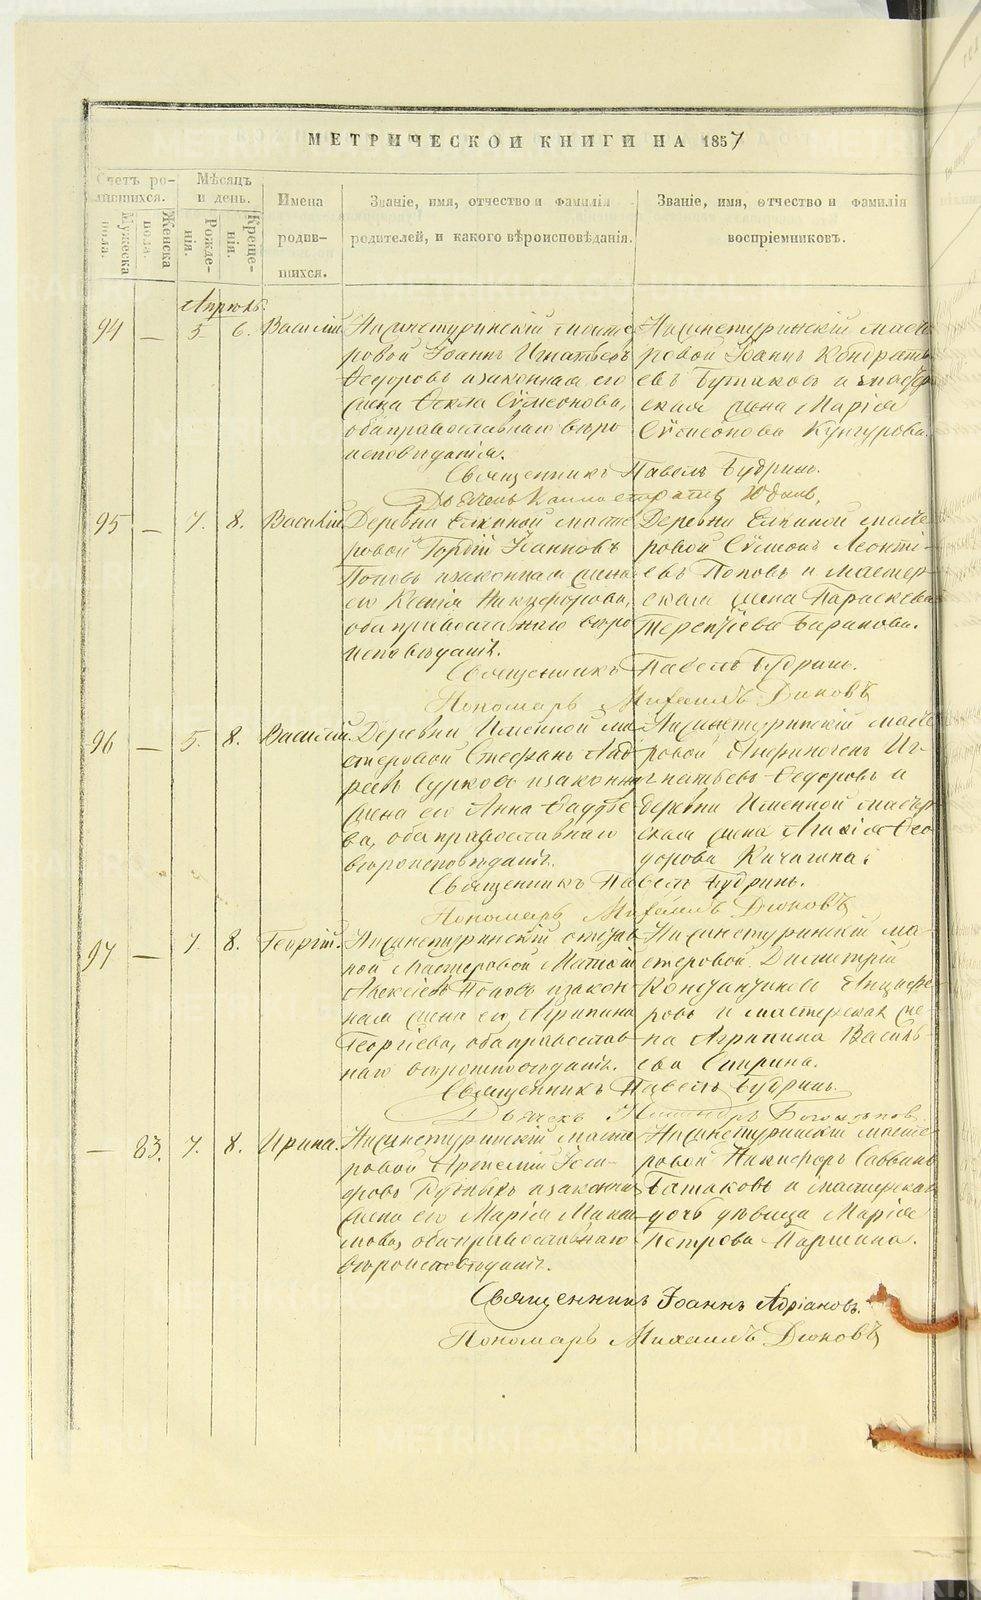 МЕТРИЧЕСКОЙ КНИГИ НА 1857
Счетъ ро-
дившихся.
Мужеска
пола.
Женска
пола.
Мѣсяцъ
и день.
Рожде-
нія.
Креще-
нія.
Имена
родив-
шихся.
Званіе, имя, отчество и фамилія
родителей, и какого вѣроисповѣданія.
Званіе, имя, отчество и фамилія
воспріемниковъ.
Апрѣль.
94 — 5 6. Василій
Нижнетуринскій масте
ровой Іоаннъ Игнатьевъ
Ѳедоровъ и законная его
жена Ѳекла Сѵмеонова,
оба православнаго вѣро
исповѣданія.
Нижнетуринскій масте
ровой Іоаннъ Кондрать
евъ Бушаковъ и мастер
ская жена Марія
Сѵмеонова Кунгурова.
Священникъ Павелъ Будринъ.
95 — 7. 8. Василій
Деревни Елкиной масте
ровой Гордій Іоанновъ
Поповъ и законная жена
его Ксенія Никифорова,
оба православнаго вѣро
исповѣданія.
Деревни Елкиной масте
ровой Сѵмеонъ Леонті-
евъ Поповъ и мастер-
ская жена Параскева
Терентіева Баранова.
Священникъ Павелъ Будринъ.
Пономарь Михаилъ Дюковъ
96 — 5. 8. Василій
Деревни Именной ма-
стеровой Стефанъ Анд
реевъ Сурковъ и законна
жена его Анна Фаддее
ва, оба православнаго
вѣроисповѣданія.
Нижнетуринскій масте
ровой Анфиногенъ Иг-
натьевъ Ѳедоровъ и
деревни Именной мастер
ская жена Ѳео
дорова Кичигина.
Священникъ Павелъ Будринъ.
Пономарь Михаилъ Дюковъ
97 — 7. 8. Георгій.
Нижнетуринскій отстав
ной мастеровой Матвій
Алексіевъ Поповъ и закон
ная жена его Агрипина
Георгіева, оба православ
наго вѣроисповѣданія.
Нижнетуринскій ма-
стеровой Димитрій
Константиновъ Анцыфе
ровъ и мастерская же-
на Агрипина Василь-
ева
Священникъ Павелъ Будринъ.
— 83. 7. 8. Ирина.
Нижнетуринскій масте
ровой Артемій
и законна
жена его Марія Макси
мова, оба православнаго
вѣроисповѣданія.
Нижнетуринскій масте-
ровой Никифоръ Саввинъ
Батаковъ и мастерская
дочь дѣвица Марія
Петрова Паршина.
Священникъ Іоаннъ Адріановъ.
Пономарь Михаилъ Дюковъ
METRIKI.GASO-URAL.RU